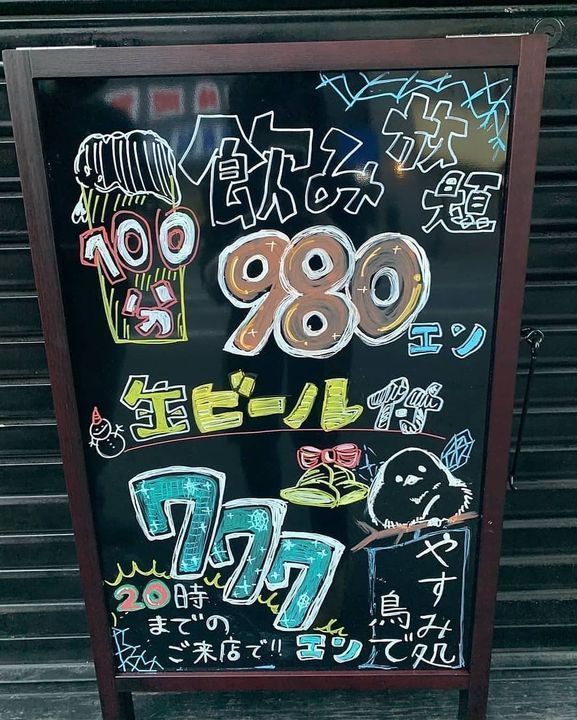 飲み放題
100分
980エン
生ビールが
777エン
20時
までの
ご来店で!!
やすみ処
鳥で